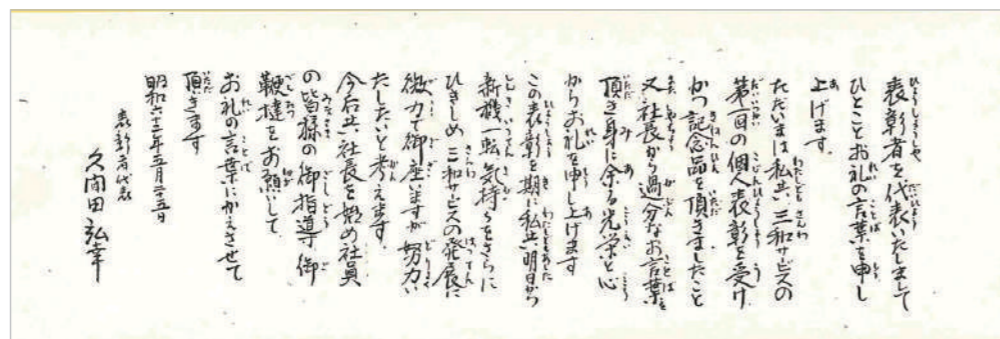 表彰者を代表いたしまして
ひとことお礼の言葉を申し
上げます。
ただいまは私共、三和サービスの
第一回の個人表彰を受け
かつ記念品を頂きましたこと
又、社長から過分なお言葉を
頂き身に余る光栄と心
からお礼を申し上げます
この表彰を期に私共、明日から
新機一転、気持ちをさらに
ひきしめ三和サービスの発展に
微力で御座いますが努力い
たしたいと考えます。
今后共、社長を始め社員
の皆様の御指導御
鞭撻をお願いして、
お礼の言葉にかえさせて
頂きます
昭和六十三年五月二十五日
表彰者代表
久間田弘幸